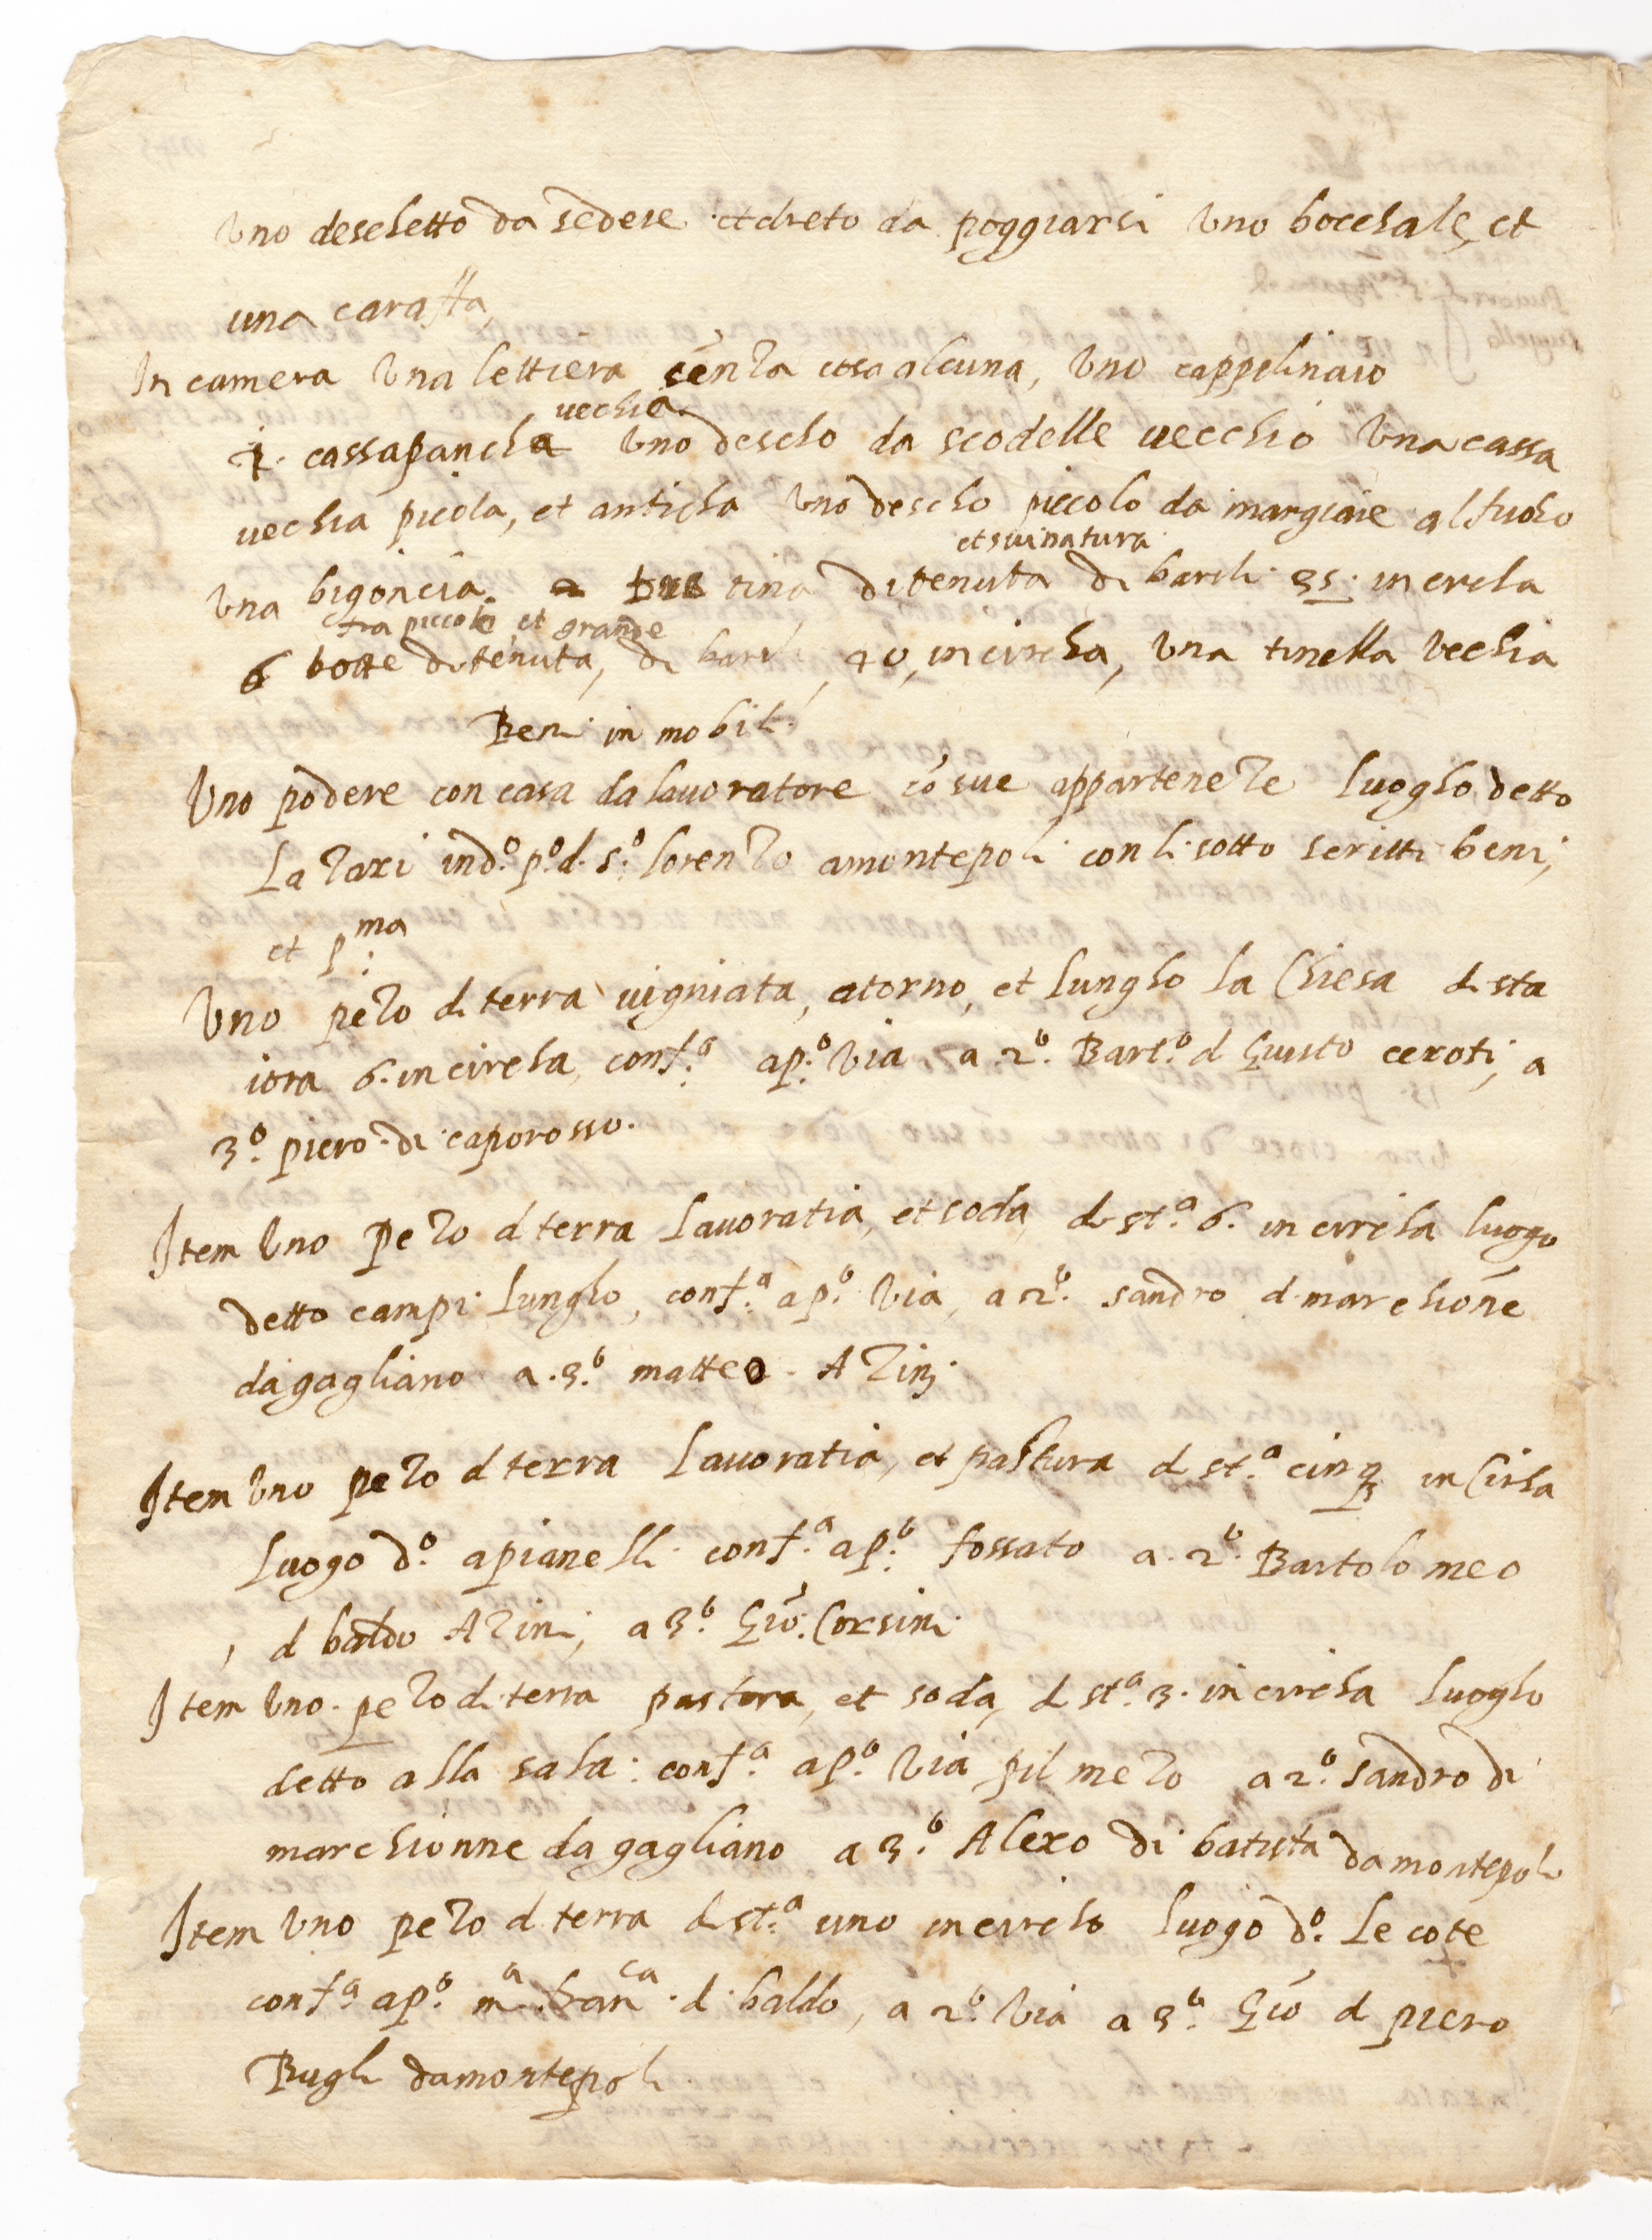 Uno deschetto da sedere et dreto da poggiarsi Uno bocchale, et
una caraffa,
In camera Una lettiera senza cosa alcuna, Uno cappelinaio
vechia
i. cassapancha Uno descho da scodelle vecchio Una cassa
vechia picola, et anticha Uno descho piccolo da mangiare al fuoho
et svinatura
Una bigoncia. tina di tenuta di barili 35. in circha
tra piccole et grande
6 botte di tenuta, di barili, 40, in circha, Una tinella vechia
Beni in mobili.
Uno podere con casa da lavoratore cō sue appartenēze luogho detto
La zaxi ind.º p.º d. s.º lorenzo a montepoli con li sotto scritti beni,
et p.ma
Uno pezo di terra vigniata, atorno, et lungho la Chiesa di sta
iora 6. in circha conf.ª a p.º Via a 2.º Bart.º d Giusto ceroti, a
3.º piero di caporosso.
Item Uno pezo d terra Lavoratia, et soda, di st.ª 6. in circha luogo
detto campi lungho, conf.ª a p.º Via, a 2.º sandro d marchiōne
da gagliano a .3.º matteo Azini
Item Uno pezo d terra Lavoratia, et pastura d st.ª cinq in Circha
Luogo d.º a pianelli conf.ª a p.º fossato a. 2.º Bartolomeo
d baldo Azini, a 3.º Giō: Corsini
Item Uno. pezo di terra pastura, et soda, d st.ª 3. in circha luogho
detto alla sala: conf.ª a p.º Via pil mezo a 2.º sandro di
marchionne da gagliano a 3.º Alexo di batista da montepoli
Item Uno pezo d terra di st.ª uno in circho luogo d.º Le cote
conf.ª a p.º m.ª fran.ca d baldo, a 2.º Via a 3.º Giō d piero
Bugli da montepoli